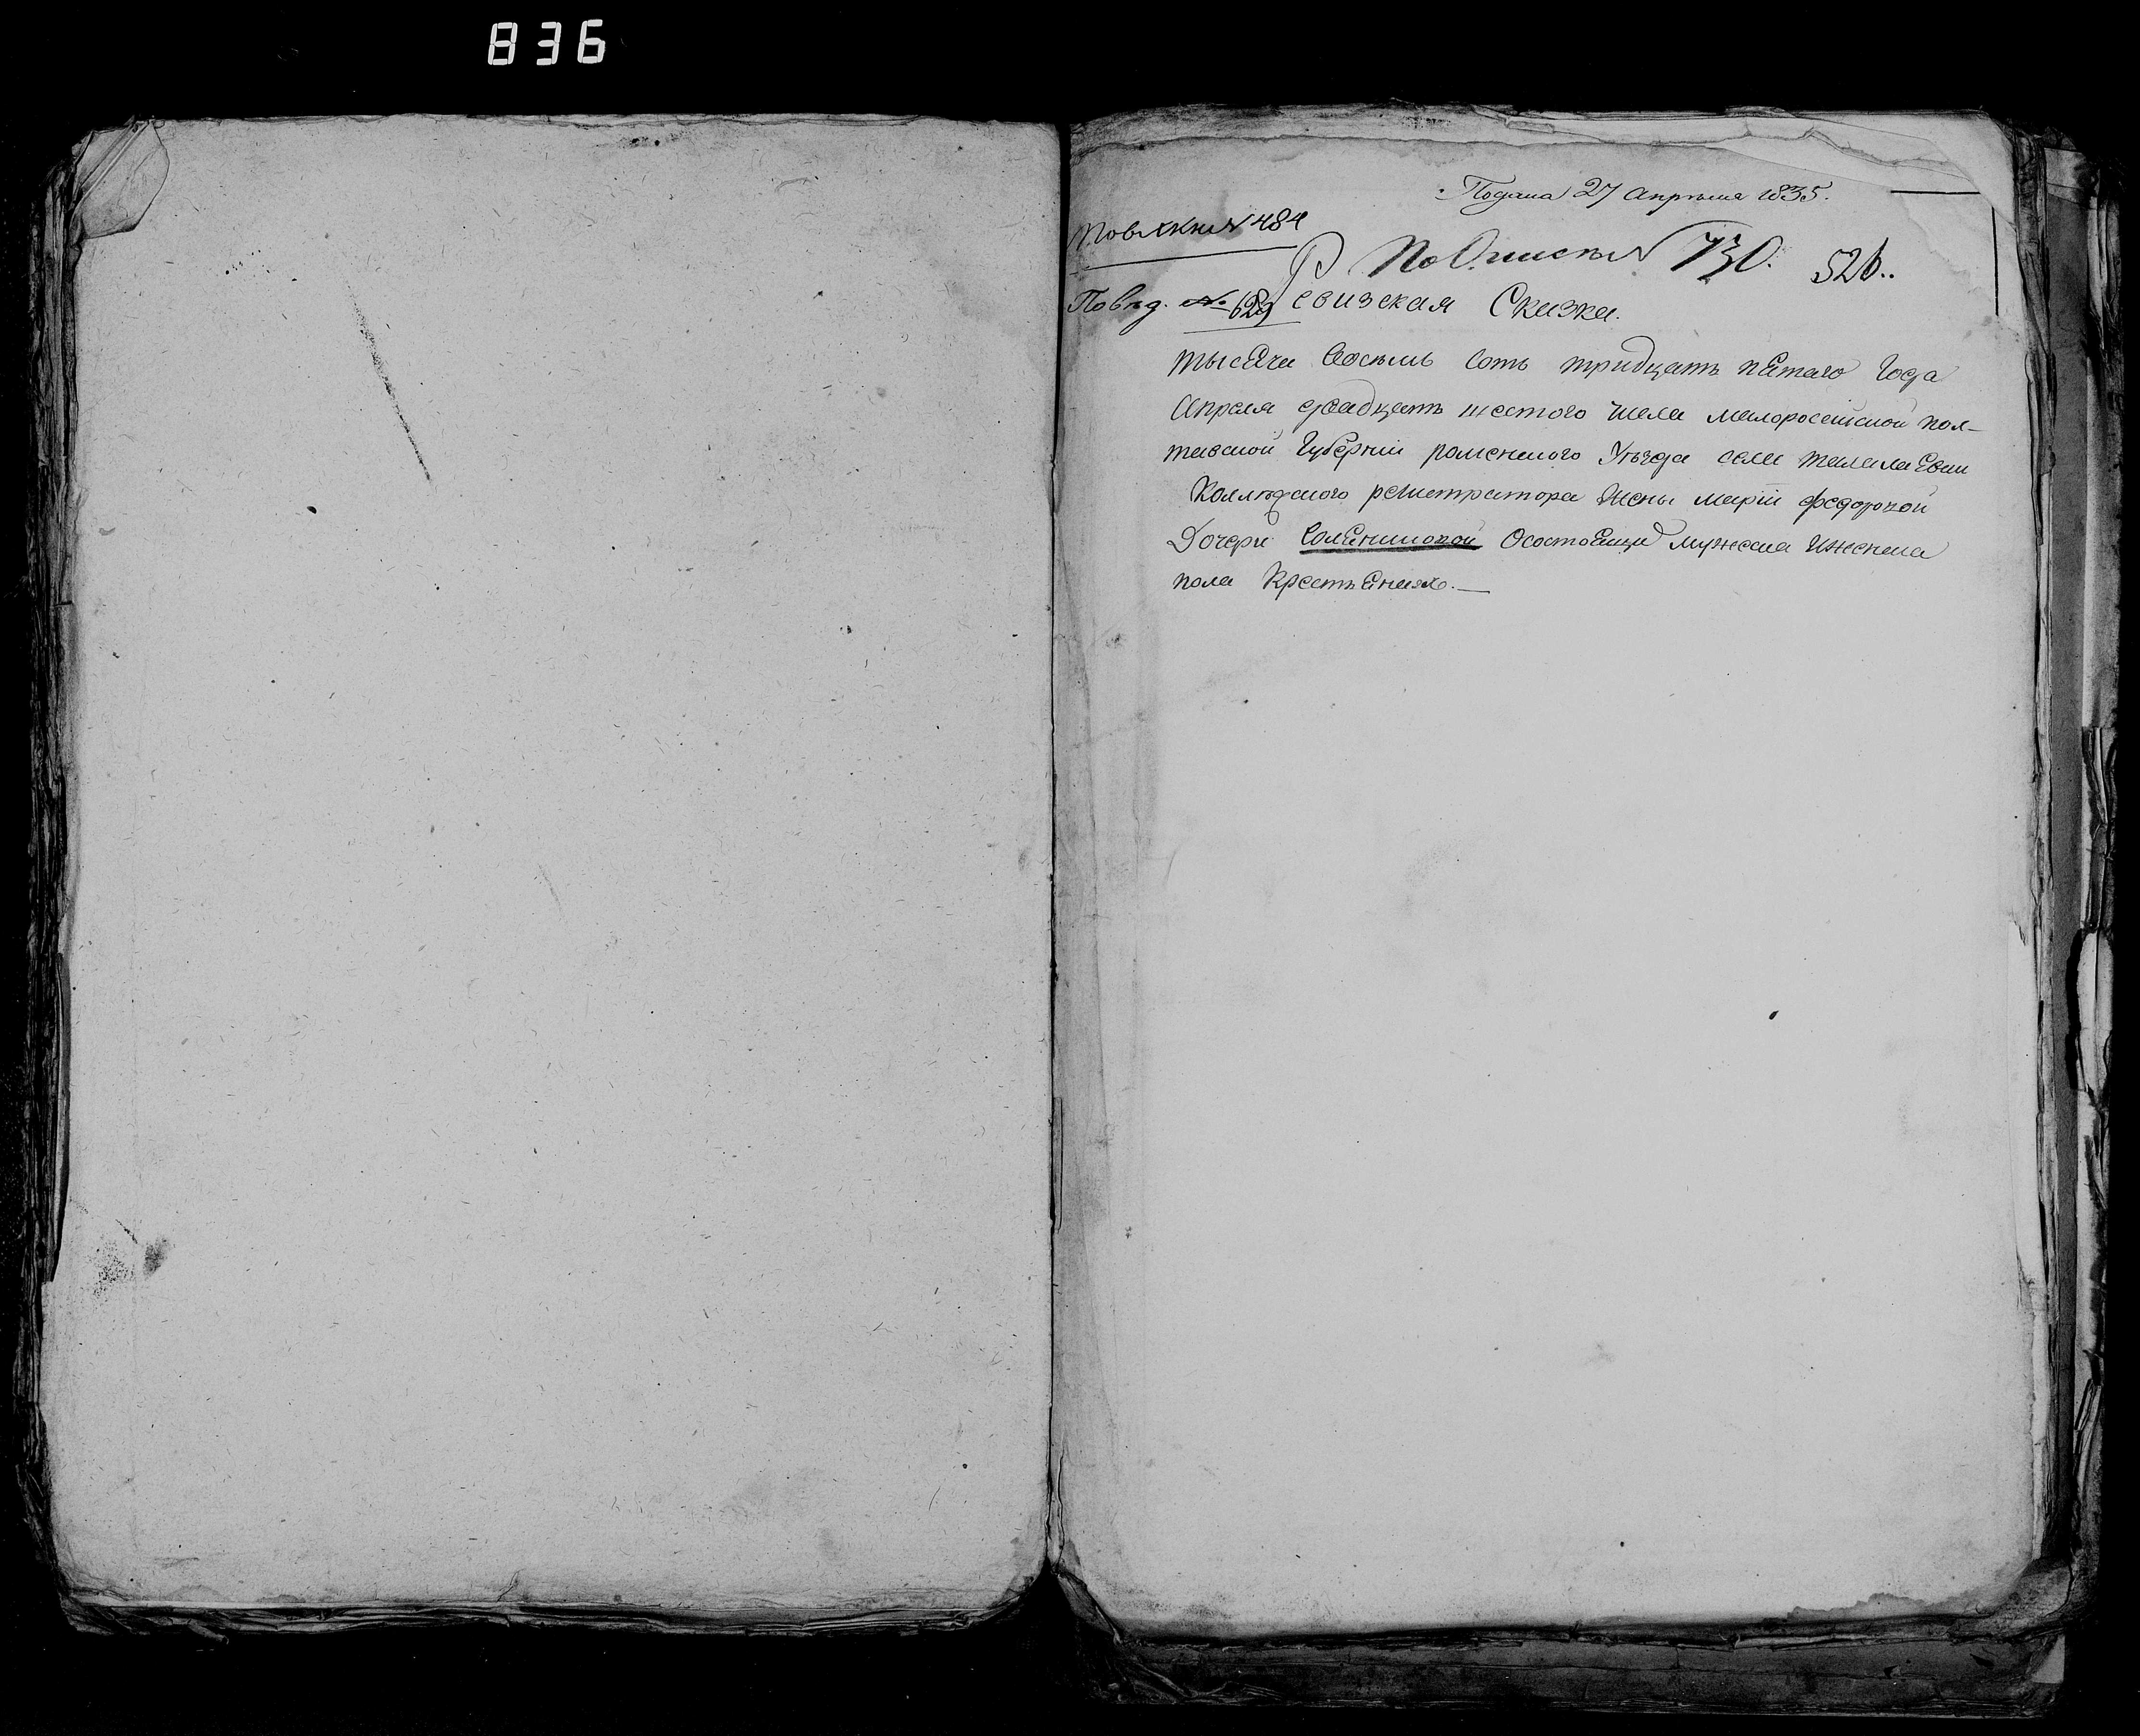 836
Подана 27 апреля 1835.
№ 484
По Описи № 730. 526..
По № 629 Ревизская Сказка.
тысяча восемь сотъ тридцать пятаго года
апреля двадцать шестого числа малоросейской пол-
тавской Губернии роменского Уезда села талалаевки
Коллежского регистратора жены марии федоровой
Дочери Осостоящи мужеска иженска
пола крестьянахъ.—